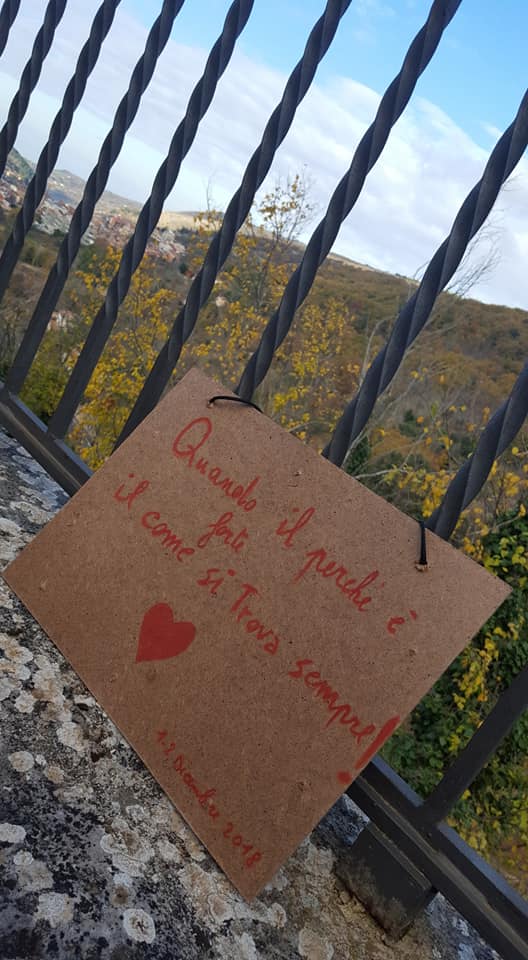 Quando il perché è
forte
il come si Trova sempre!
1-2 Dicembre 2018